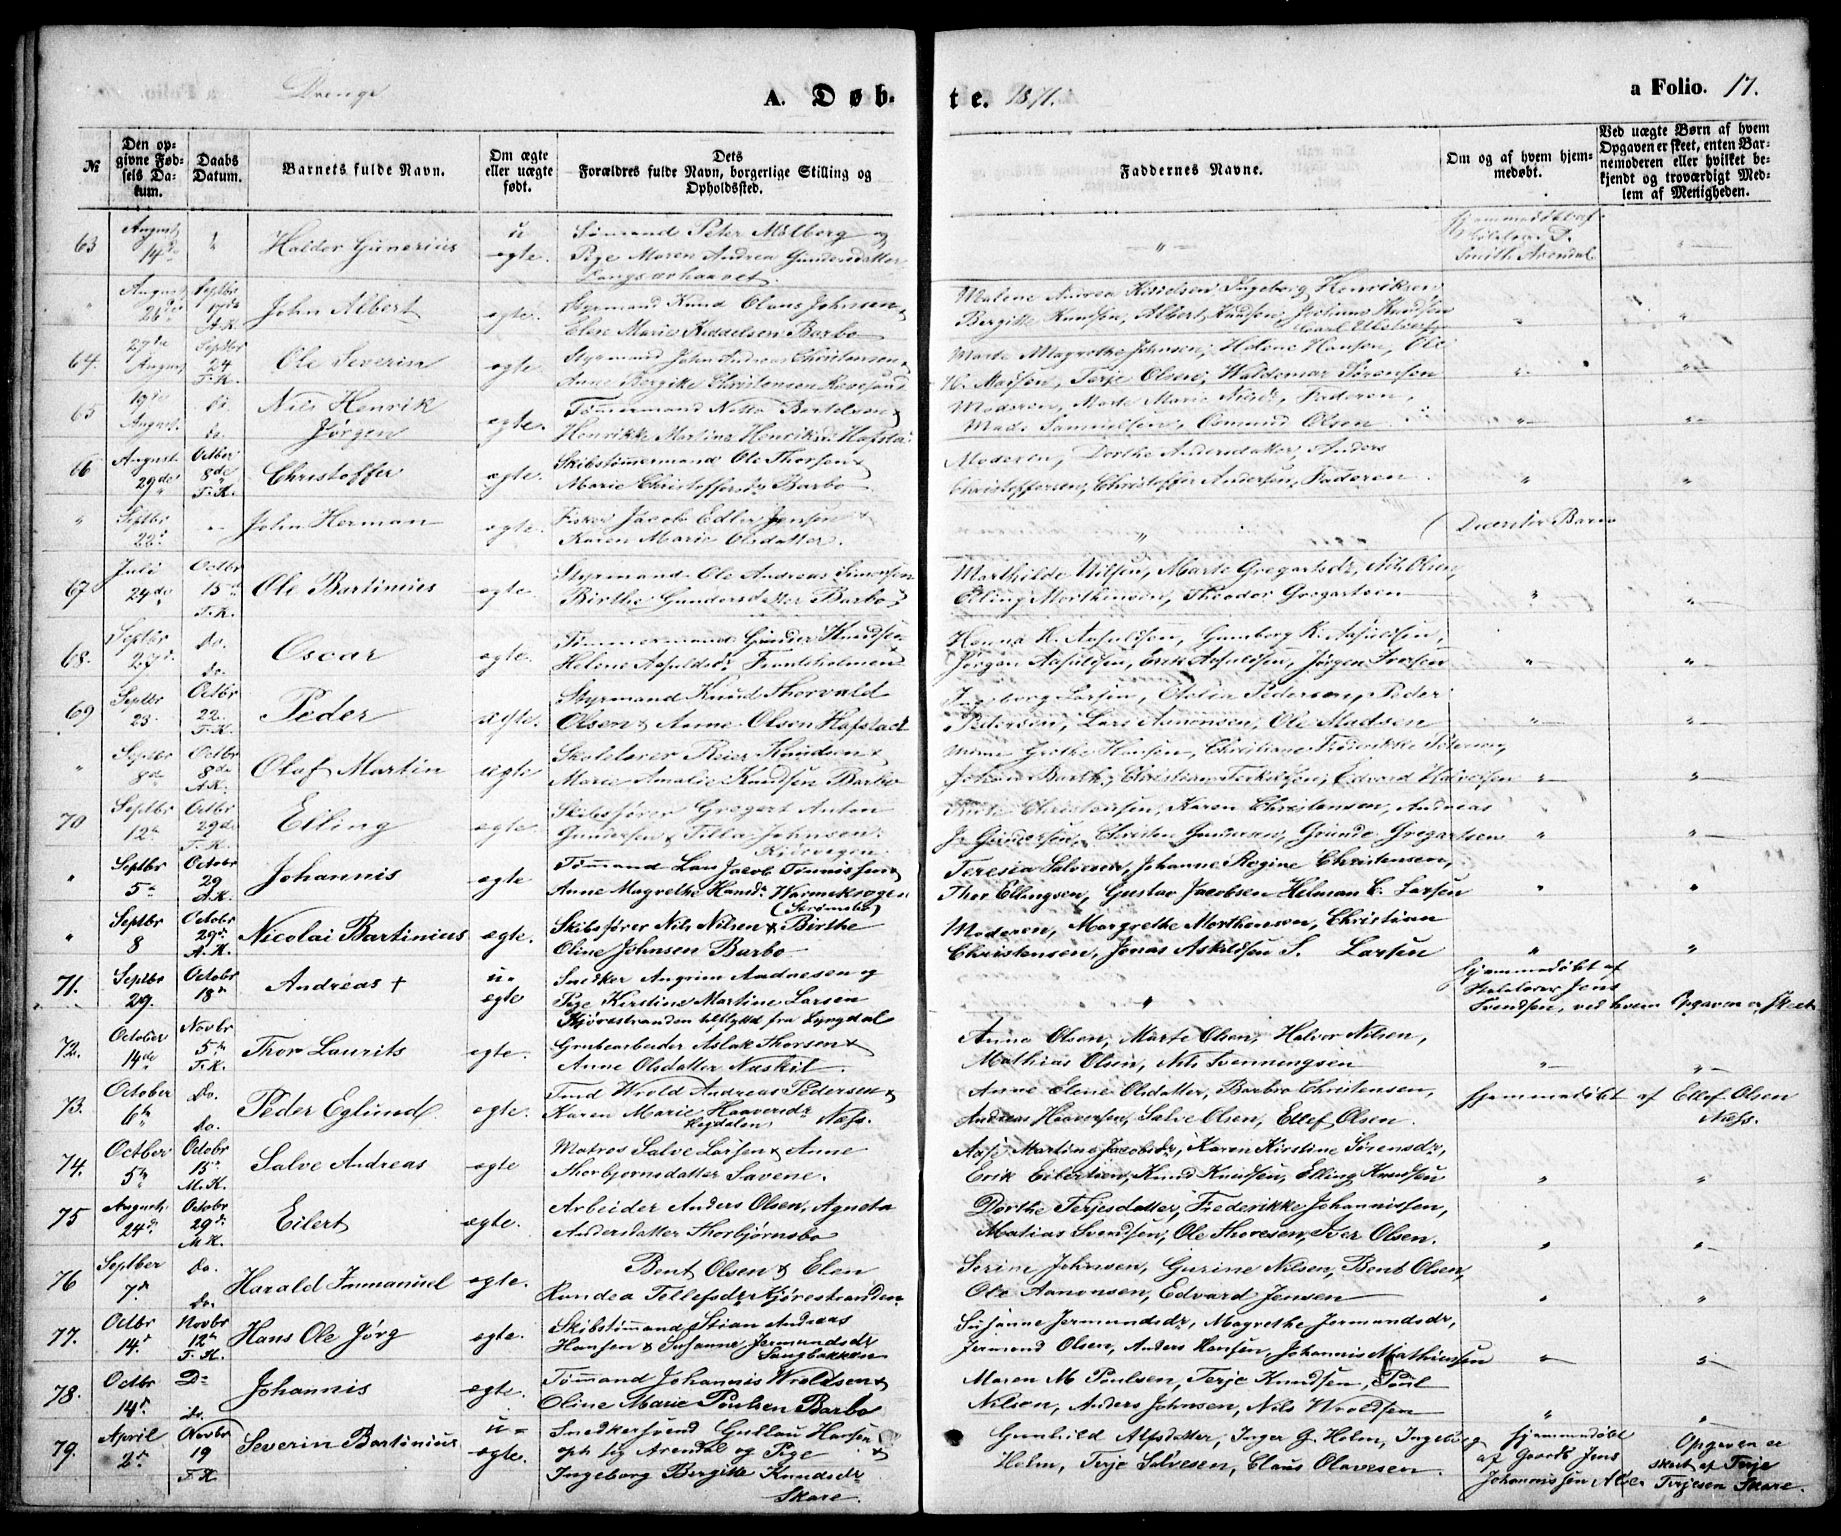 Drenge
A. Døbte. 1871.
a Folio. 17.
№
Den opgivne Fødsels Datum.
Daabs Datum.
Barnets fulde Navn.
Om ægte eller uægte født.
Dets Forældres fulde Navn, borgerlige Stilling og Opholdssted.
Faddernes Navne.
Om og af hvem hjemmedøbt.
Ved uægte Børn af hvem Opgaven er skeet, enten Barnemoderen eller hvilket bekjendt og troværdigt Medlem af Menigheden.
63 August 14de " Halder Gunerius uegte. Sømand Peter Mölberg og
Pige Maren Andrea Gundersdatter
" Hjemmedøbt af
Smith Arendal "
" August 26de Septbr 17de A.K. John Albert egte. Styrmand Knud Olaus Johnsen &
Elen Marie Kiddelsen Barbo
Malene Andrea Kittelsen, Ingeborg Henriksen
Bergitte Knudsen, Albert Knudsen, Jochum Knudsen
64. 27de August Septbr 24 F.K. Ole Severin egte. Styrmand John Andreas Christensen &
Anne Bergitte Christensen Revesand
Marte Magrethe Johnsen, Helene Hansen, Ole
H. Madsen, Terje Olsen, Waldemar Sörensen
65 19de August. do. do. Nils Henrik
Jörgen egte. Tømmermand Bertelsen &
Henrikke Martine Henriksd: Hafsta
Moderen, Marte Marie Nilsdr, Faderen,
Mads Samuelsen, Osmund Olsen
66 August 29de Octber 8de F.K. Christoffer egte. Skibstømmermand Ole Thorsen &
Marie Christoffersdr Barbo
Moderen, Dorthe Andersdatter, Anders
Christoffersen, Christoffer Andersen, Faderen
" Septbr 22de " John Herman egte. Fisker Jacob Edler Jensen &
Karen Marie Olsdatter.
" Decenter Barn
67 Juli 24de Octbr 15de F.K. Ole Bartinius egte. Styrmand Ole Andreas Simonsen
Birthe Gundersdatter Barbo
Marthilde Nilsen, Marte Gregartsdr, Nils Olsen,
Elling Morthensen, Theodor Gregartsen
68. Septbr 27de do. do. Oscar egte. Tömmermand Gunder Knudsen
Helene Aasuldsdr Frankholmen
Hanna K. Aasuldsen, Gunborg K. Aasuldsen,
Jørgen Aasuldsen, Erik Aasuldsen, Jørgen Iversen
69 Septbr 23. Octbr 22. F.K. Peder ægte. Styrmand Knud Thorvald
Olsen & Anne Olsen Hafstad
Ingeborg Larsen, Pedersen, Peder
Pedersen, Lars Aanonsen, Ole Madsen
" Septbr 8de Octbr 8de A.K. Olaf Martin ægte Skolelærer Reier Knudsen &
Marie Amalie Knudsen Barbo
Grethe Hansen, Christiane Frederikke Petersen,
Johan Barth, Christian Terkelsen, Edvard Halvorsen
70 Septbr 12te Octbr 29de F.K. Elling egte. Skibsfører Gregert Anton
Gundersen & Tilla Johnsen
Christensen, Karen Christensen, Andreas
J. Gundersen, Christen Gundersen, Grunde Gregartsen
" Septbr 5te October 29 A.K. Johannis egte Tømmand Lars Jacob Tönnissen &
Anne Magrethe Hansdr Warmekrogen
(Strømsbo)
Teresia Salvesen, Johanne Regine Christensen,
Thor Ellingsen, Gustav Jacobsen Helman C. Larsen
" Septbr 8 October 29de A.K. Nicolai Bartinius ægte. Skibsfører Nils Nilsen & Birthe
Oline Johnsen Barbo
Moderen, Margrethe Morthensen, Christian
Christensen, Jonas Askildsen S. Larsen
71. Septbr 29. Octobr 18de Andreas + u-egte Snedker Angrim Andresen og
Pige Kirstine Martine Larsen
Kjörestranden tilflyttet fra Lyngdal
" Hjemmedøbt af
Skolelærer Jens
Svendsen, ved hvem Opgaven er skeet
72. October 14de Novbr 5te F.K. Thor Laurits egte. Grubearbeider Aslak Thorsen &
Anne Olsdatter Naskil
Anne Olsen, Marte Olsen, Halvor Nilsen,
Mathias Olsen, Nils Svenningsen
73. October 6te Do. do. Peder Eglund egte. Tmd Wrold Andreas Pedersen &
Karen Marie Haaversdr Næs.
Heydalen
Anne Elene Olsdatter, Barbro Christensen,
Andreas Haaversen, Salve Olsen, Ellef Olsen.
Hjemmedøbt af Ellef Olsen
Næss.
74. October 5te Octobr 15de M.K. Salve Andreas egte Matros Salve Larsen & Anne
Thorbjørnsdatter Savene.
Aase Martine Jacobsdr, Karen Kirstine Sörensdr,
Erik Eilertsen, Knud Knudsen, Elling Knudsen
75 August 24de Octobr 29de M.K. Eilert egte. Arbeider Anders Olsen, Agneta
Andersdatter Thorbjørnsbo
Dorthe Terjesdatter, Frederikke Johannissen,
Matias Svendsen, Ole Thoresen, Iver Olsen.
76 Septber 7de do. do. Harald Immanuel egte. Bent Olsen & Elen
Randea Tellefsdr Kjørestranden
Serine Johnsen, Gurine Nilsen, Bent Olsen,
Ole Aanonsen, Edvard Jensen
77. Octbr 14de Novbr 12te F.K. Hans Ole Jørg egte. Skibstömmand Stian Andreas
Hansen & Susanne Jermundsdr
Sangbakken
Susanne Jermundsdr, Magrethe Jermundsdr,
Jermund Olsen, Anders Hansen, Johannis Mathiesen
78. Octbr 14de Do do. Johannis egte. Tömmand Johannis Wroldsen &
Oline Marie Poulsen Barbo
Maren M Poulsen, Terje Knudsen, Poul
Nilsen, Anders Johnsen, Nils Wroldsen
79. April 2de Novbr 19 F.K. Severin Bartinius u-egte. Snedkersvend Gullau Hansen
oph sig Arendal og Pige
Ingeborg Bergitte Knudsdr
Skare.
Gunhild Alfsdatter, Inger G. Holm, Ingeborg
Holm, Terje Salvesen, Claus Olavesen.
Hjemmedøbt
af Gaardb Jens
Johannissen
Opgaven er
skeet af Terje
Terjesen Skare.